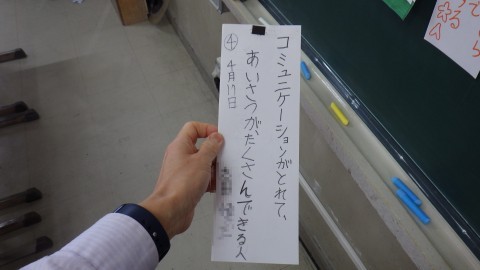 コミュニケーションがとれて、
あいさつが、たくさんできる人
④ 4月17日